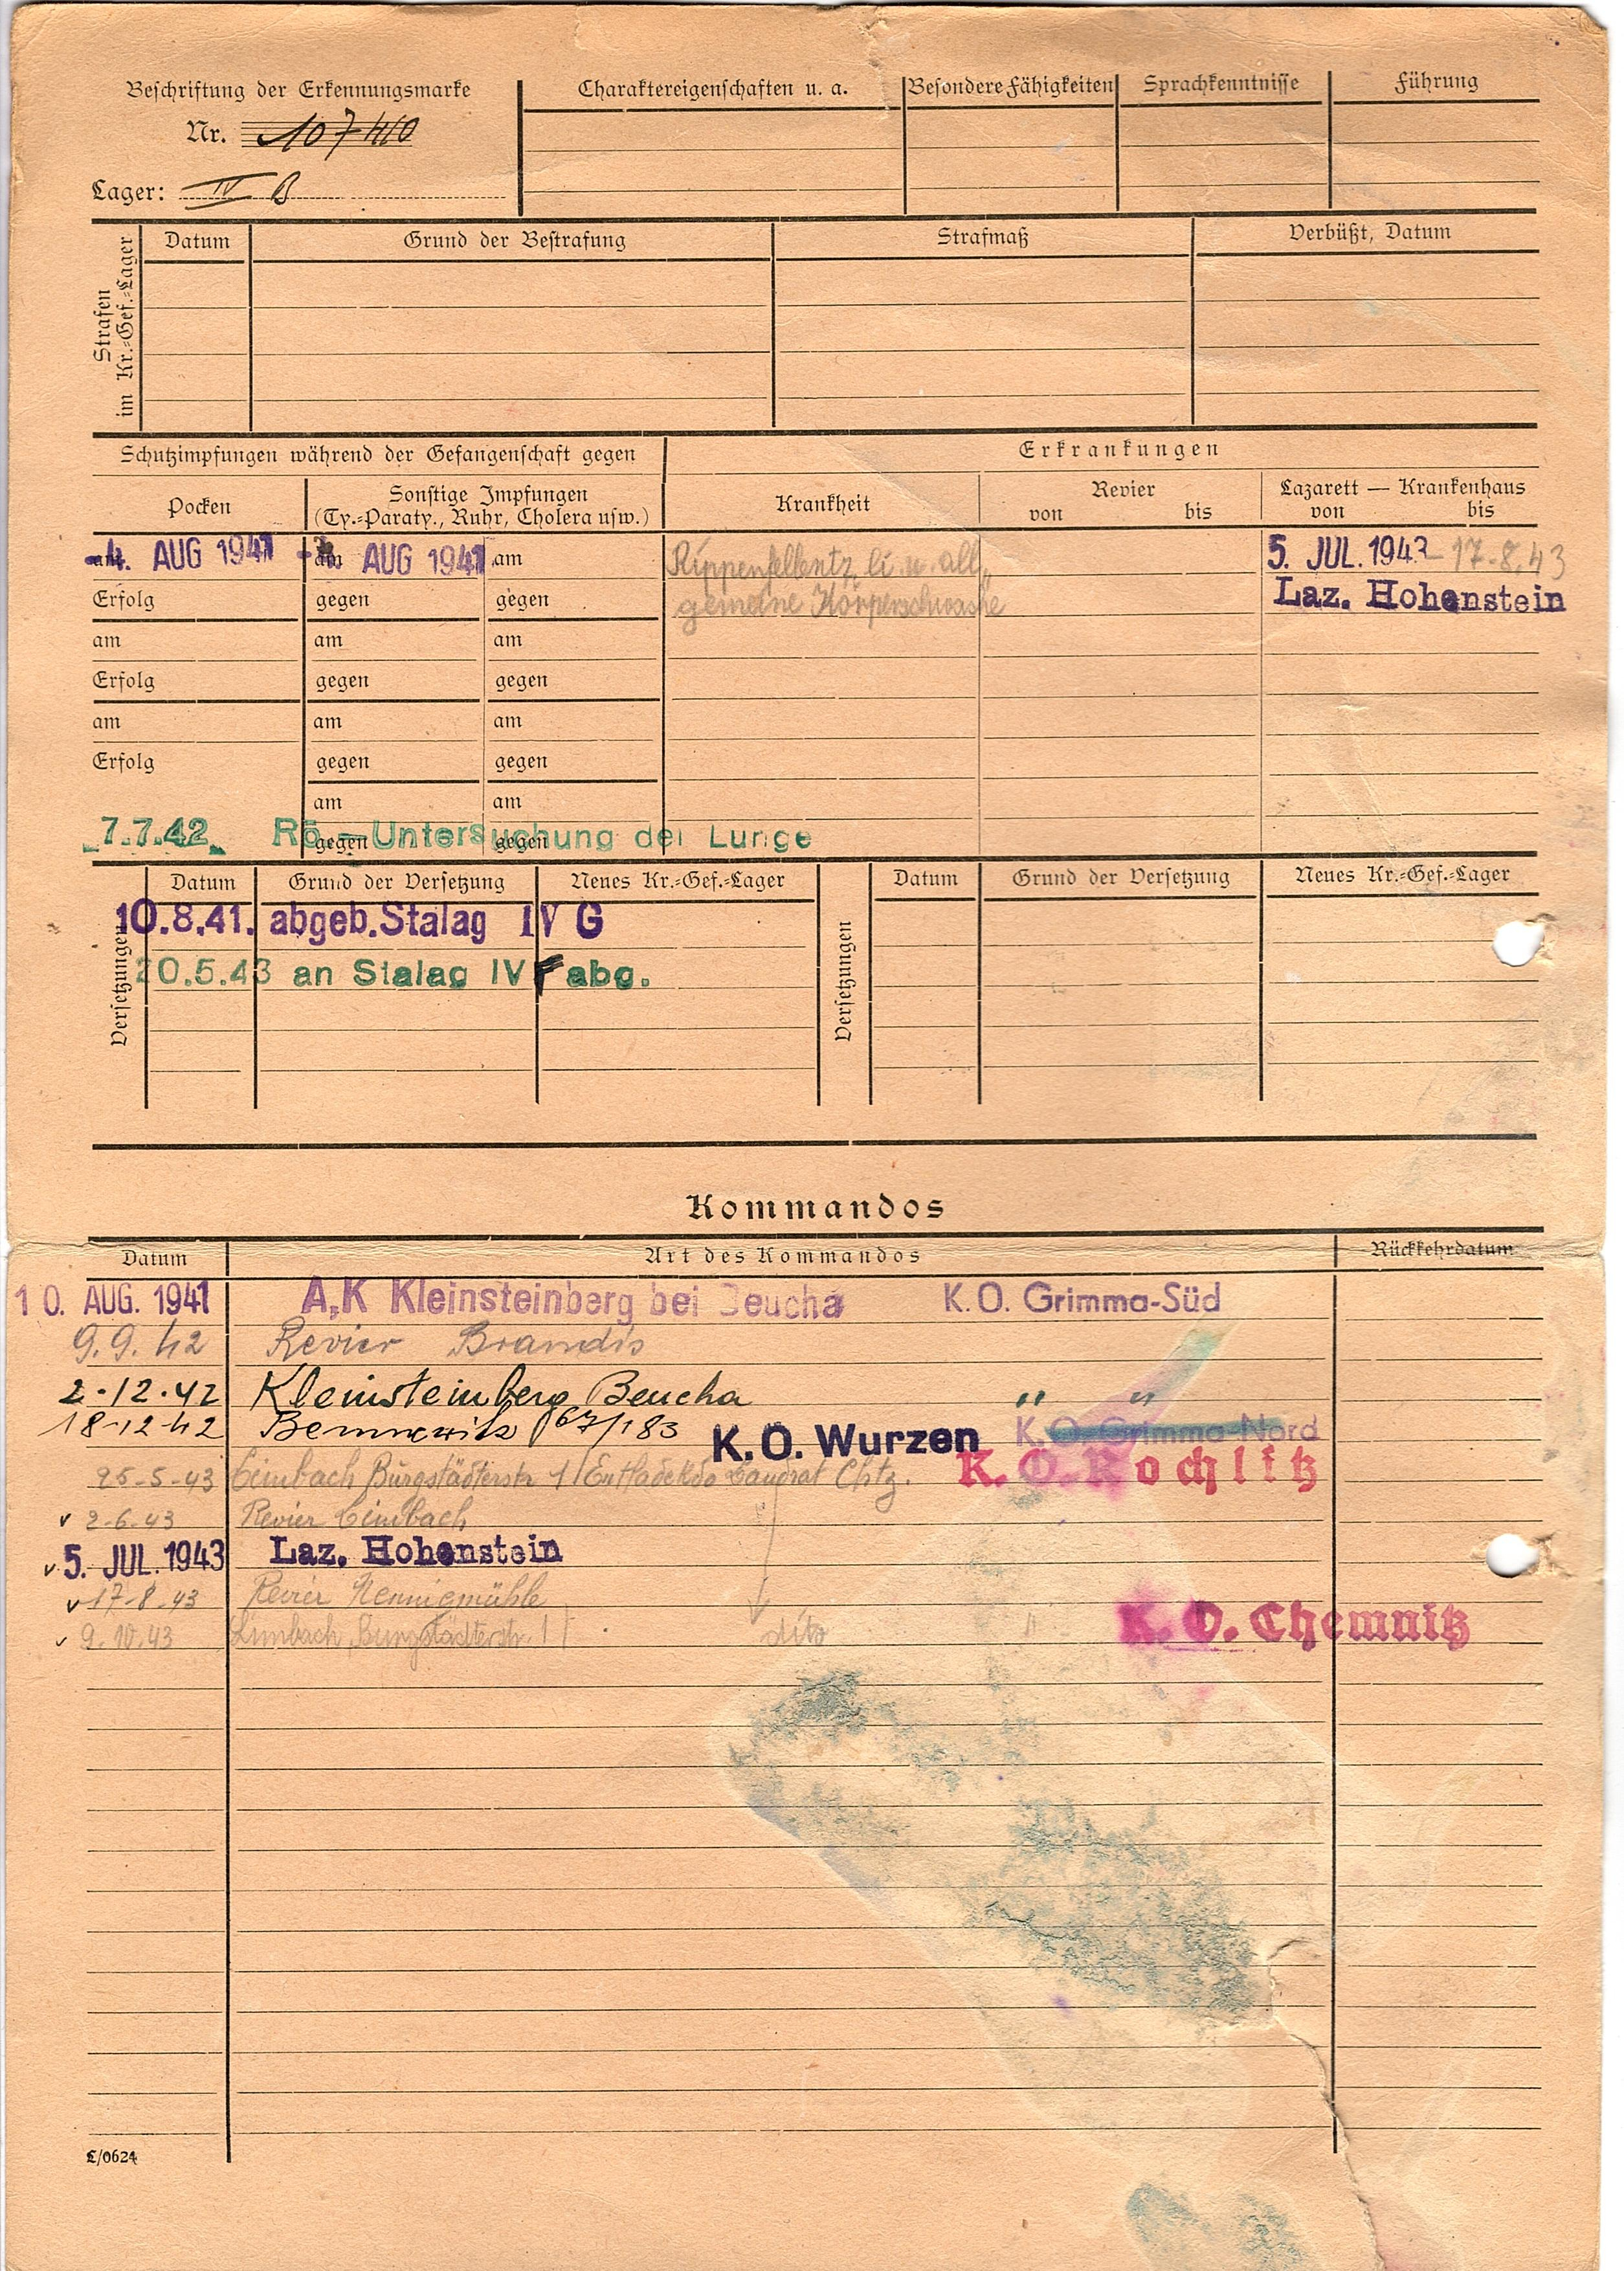 Beschriftung der Erkennungsmarke
Nr. 107410
Lager: IV B
Charaktereigenschaften u. a.
Besondere Fähigkeiten
Sprachkenntnisse
Führung
Strafen im Kr.=Gef.=Lager
Datum
Grund der Bestrafung
Strafmaß
Verbüßt, Datum
Schutzimpfungen während der Gefangenschaft gegen
Erkrankungen
Pocken
Sonstige Impfungen
(Ty.=Paraty., Ruhr, Cholera usw.)
Krankheit
Revier
von bis
Lazarett — Krankenhaus
von bis
am 4. AUG 1941 am AUG 1941 am
Rippenfellentz. li. u. all„
5. JUL. 1943 - 17.8.43
Erfolg gegen gegen
gemeine Körperschwäche
Laz. Hohenstein
am am am
Erfolg gegen gegen
am am am
Erfolg gegen gegen
am am
gegen gegen
7.7.42 Rö.-Untersuchung der Lunge
Versetzungen
Datum Grund der Versetzung Neues Kr.=Gef.=Lager
Versetzungen
Datum Grund der Versetzung Neues Kr.=Gef.=Lager
10.8.41. abgeb. Stalag IV G
20.5.43 an Stalag IV F abg.
Kommandos
Datum Art des Kommandos Rückkehrdatum
10. AUG. 1941 A.K Kleinsteinberg bei Beucha K.O. Grimma-Süd
9.9.42 Revier Brandis
2.12.42 Kleinsteinberg Beucha " "
18.12.42 Bennewitz 67/183 K.O. Wurzen K.O. Grimma-Nord
25.5.43 Limbach Burgstädterstr. 11 Entladekdo Landrat Chtz. K.O. Rochlitz
v 2.6.43 Revier Limbach
v 5. JUL. 1943 Laz. Hohenstein
v 17.8.43 Revier Hennigmühle
v 9.10.43 Limbach, Burgstädterstr. 11 dito " K.O. Chemnitz
L/0624